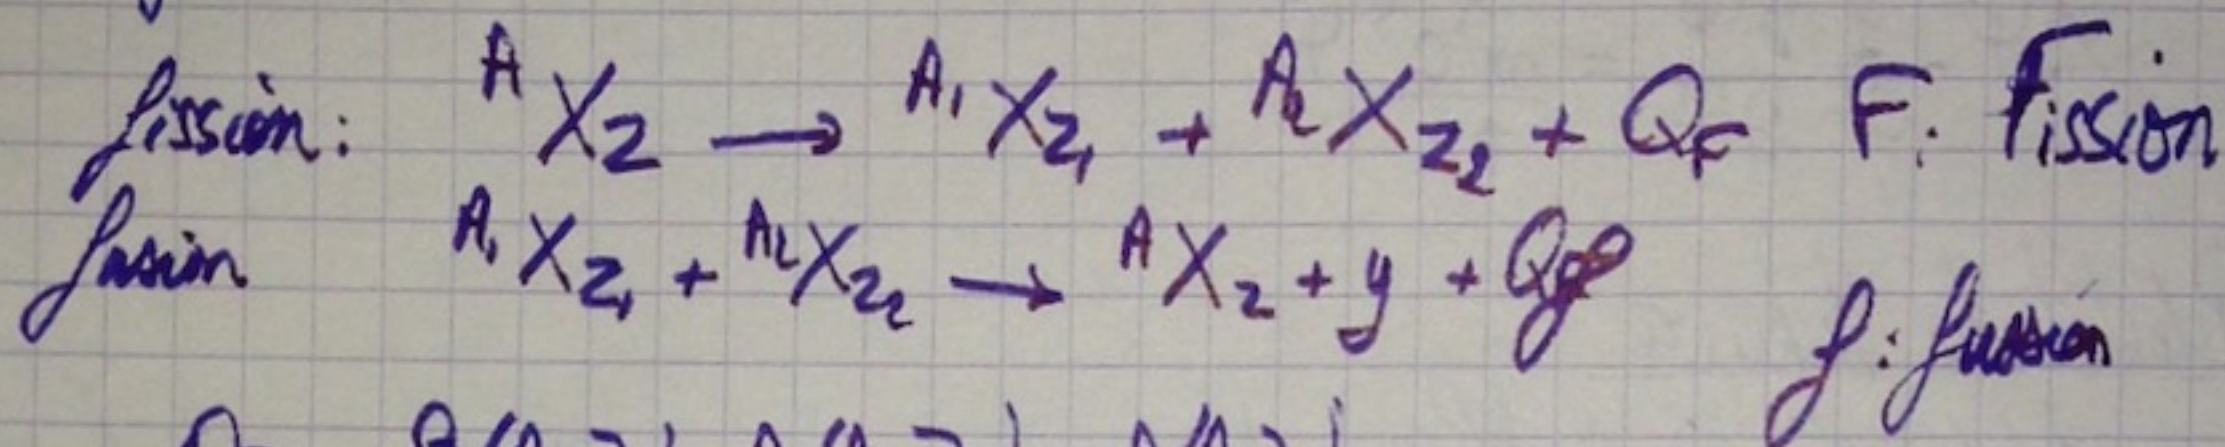 fission: ᴬX_Z → ᴬ¹X_Z₁ + ᴬ²X_Z₂ + Q_F F: Fission
fusion ᴬ¹X_Z₁ + ᴬ²X_Z₂ → ᴬX_Z + y + Q_f
f: fussion